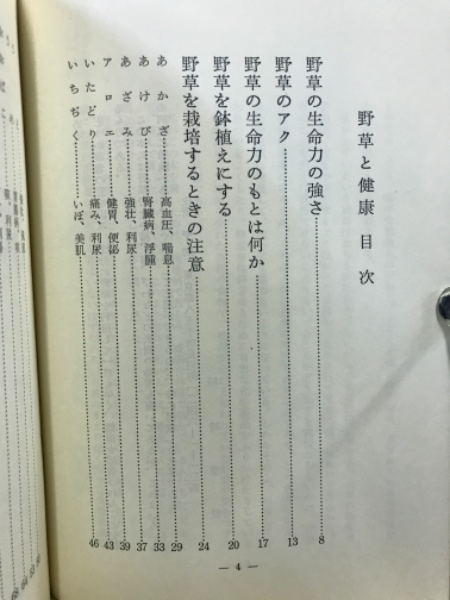 野草と健康 目次
野草の生命力の強さ……8
野草のアク……13
野草の生命力のもとは何か……17
野草を鉢植えにする……20
野草を栽培するときの注意……24
あかざ 高血圧、喘息……29
あけび 腎臓病、浮腫……33
あざみ 強壮、利尿……37
アロエ 健胃、便秘……39
いたどり 痛み、利尿……43
いちぢく いぼ、美肌……46
— 4 —